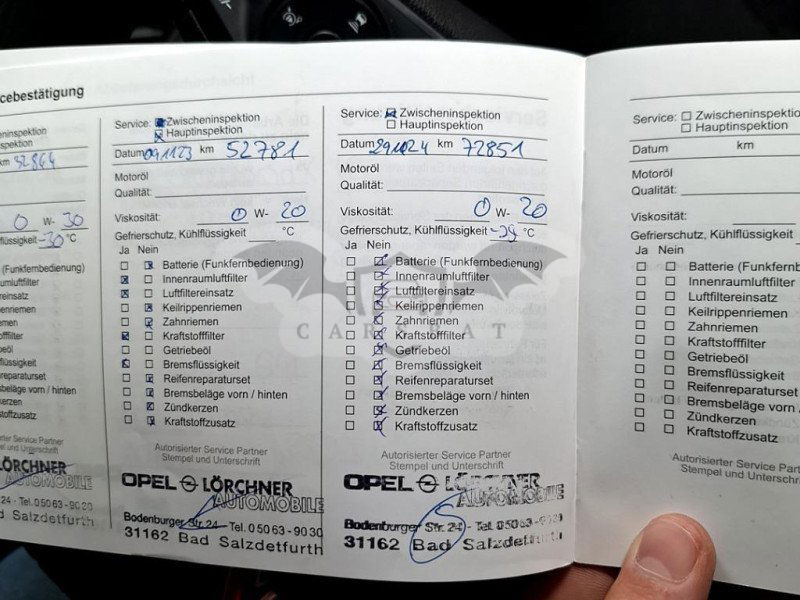 cebestätigung
eninspektion
inspektion
km 32864
0 W- 30
flüssigkeit -30 °C
(Funkfernbedienung)
umluftfilter
tereinsatz
nriemen
emen
offfilter
eöl
flüssigkeit
reparaturset
sbeläge vorn / hinten
erzen
stoffzusatz
isierter Service Partner
el und Unterschrift
LÖRCHNER
AUTOMOBILE
24 - Tel. 0 50 63 - 90 30
ad Salzdetfurth
Service: Zwischeninspektion
Hauptinspektion
Datum 091123 km 52781
Motoröl
Qualität:
Viskosität: 0 W- 20
Gefrierschutz, Kühlflüssigkeit °C
Ja Nein
Batterie (Funkfernbedienung)
Innenraumluftfilter
Luftfiltereinsatz
Keilrippenriemen
Zahnriemen
Kraftstofffilter
Getriebeöl
Bremsflüssigkeit
Reifenreparaturset
Bremsbeläge vorn / hinten
Zündkerzen
Kraftstoffzusatz
Autorisierter Service Partner
Stempel und Unterschrift
OPEL LÖRCHNER
AUTOMOBILE
Bodenburger Str. 24 - Tel. 0 50 63 - 90 30
31162 Bad Salzdetfurth
Service: Zwischeninspektion
Hauptinspektion
Datum 291024 km 72851
Motoröl
Qualität:
Viskosität: 0 W- 20
Gefrierschutz, Kühlflüssigkeit °C
Ja Nein
Batterie (Funkfernbedienung)
Innenraumluftfilter
Luftfiltereinsatz
Keilrippenriemen
Zahnriemen
Kraftstofffilter
Getriebeöl
Bremsflüssigkeit
Reifenreparaturset
Bremsbeläge vorn / hinten
Zündkerzen
Kraftstoffzusatz
Autorisierter Service Partner
Stempel und Unterschrift
OPEL LÖRCHNER
AUTOMOBILE
Bodenburger Str. 24 - Tel. 0 50 63 - 90 30
31162 Bad Salzdetfurth
Service: Zwischeninspektion
Hauptinspektion
Datum km
Motoröl
Qualität:
Viskosität: W-
Gefrierschutz, Kühlflüssigkeit
Ja Nein
Batterie (Funkfernb
Innenraumluftfilter
Luftfiltereinsatz
Keilrippenriemen
Zahnriemen
Kraftstofffilter
Getriebeöl
Bremsflüssigkeit
Reifenreparaturset
Bremsbeläge vorn / h
Zündkerzen
Kraftstoffzusatz
Autorisierter Service Pa
Stempel und Untersch
CARSBAT